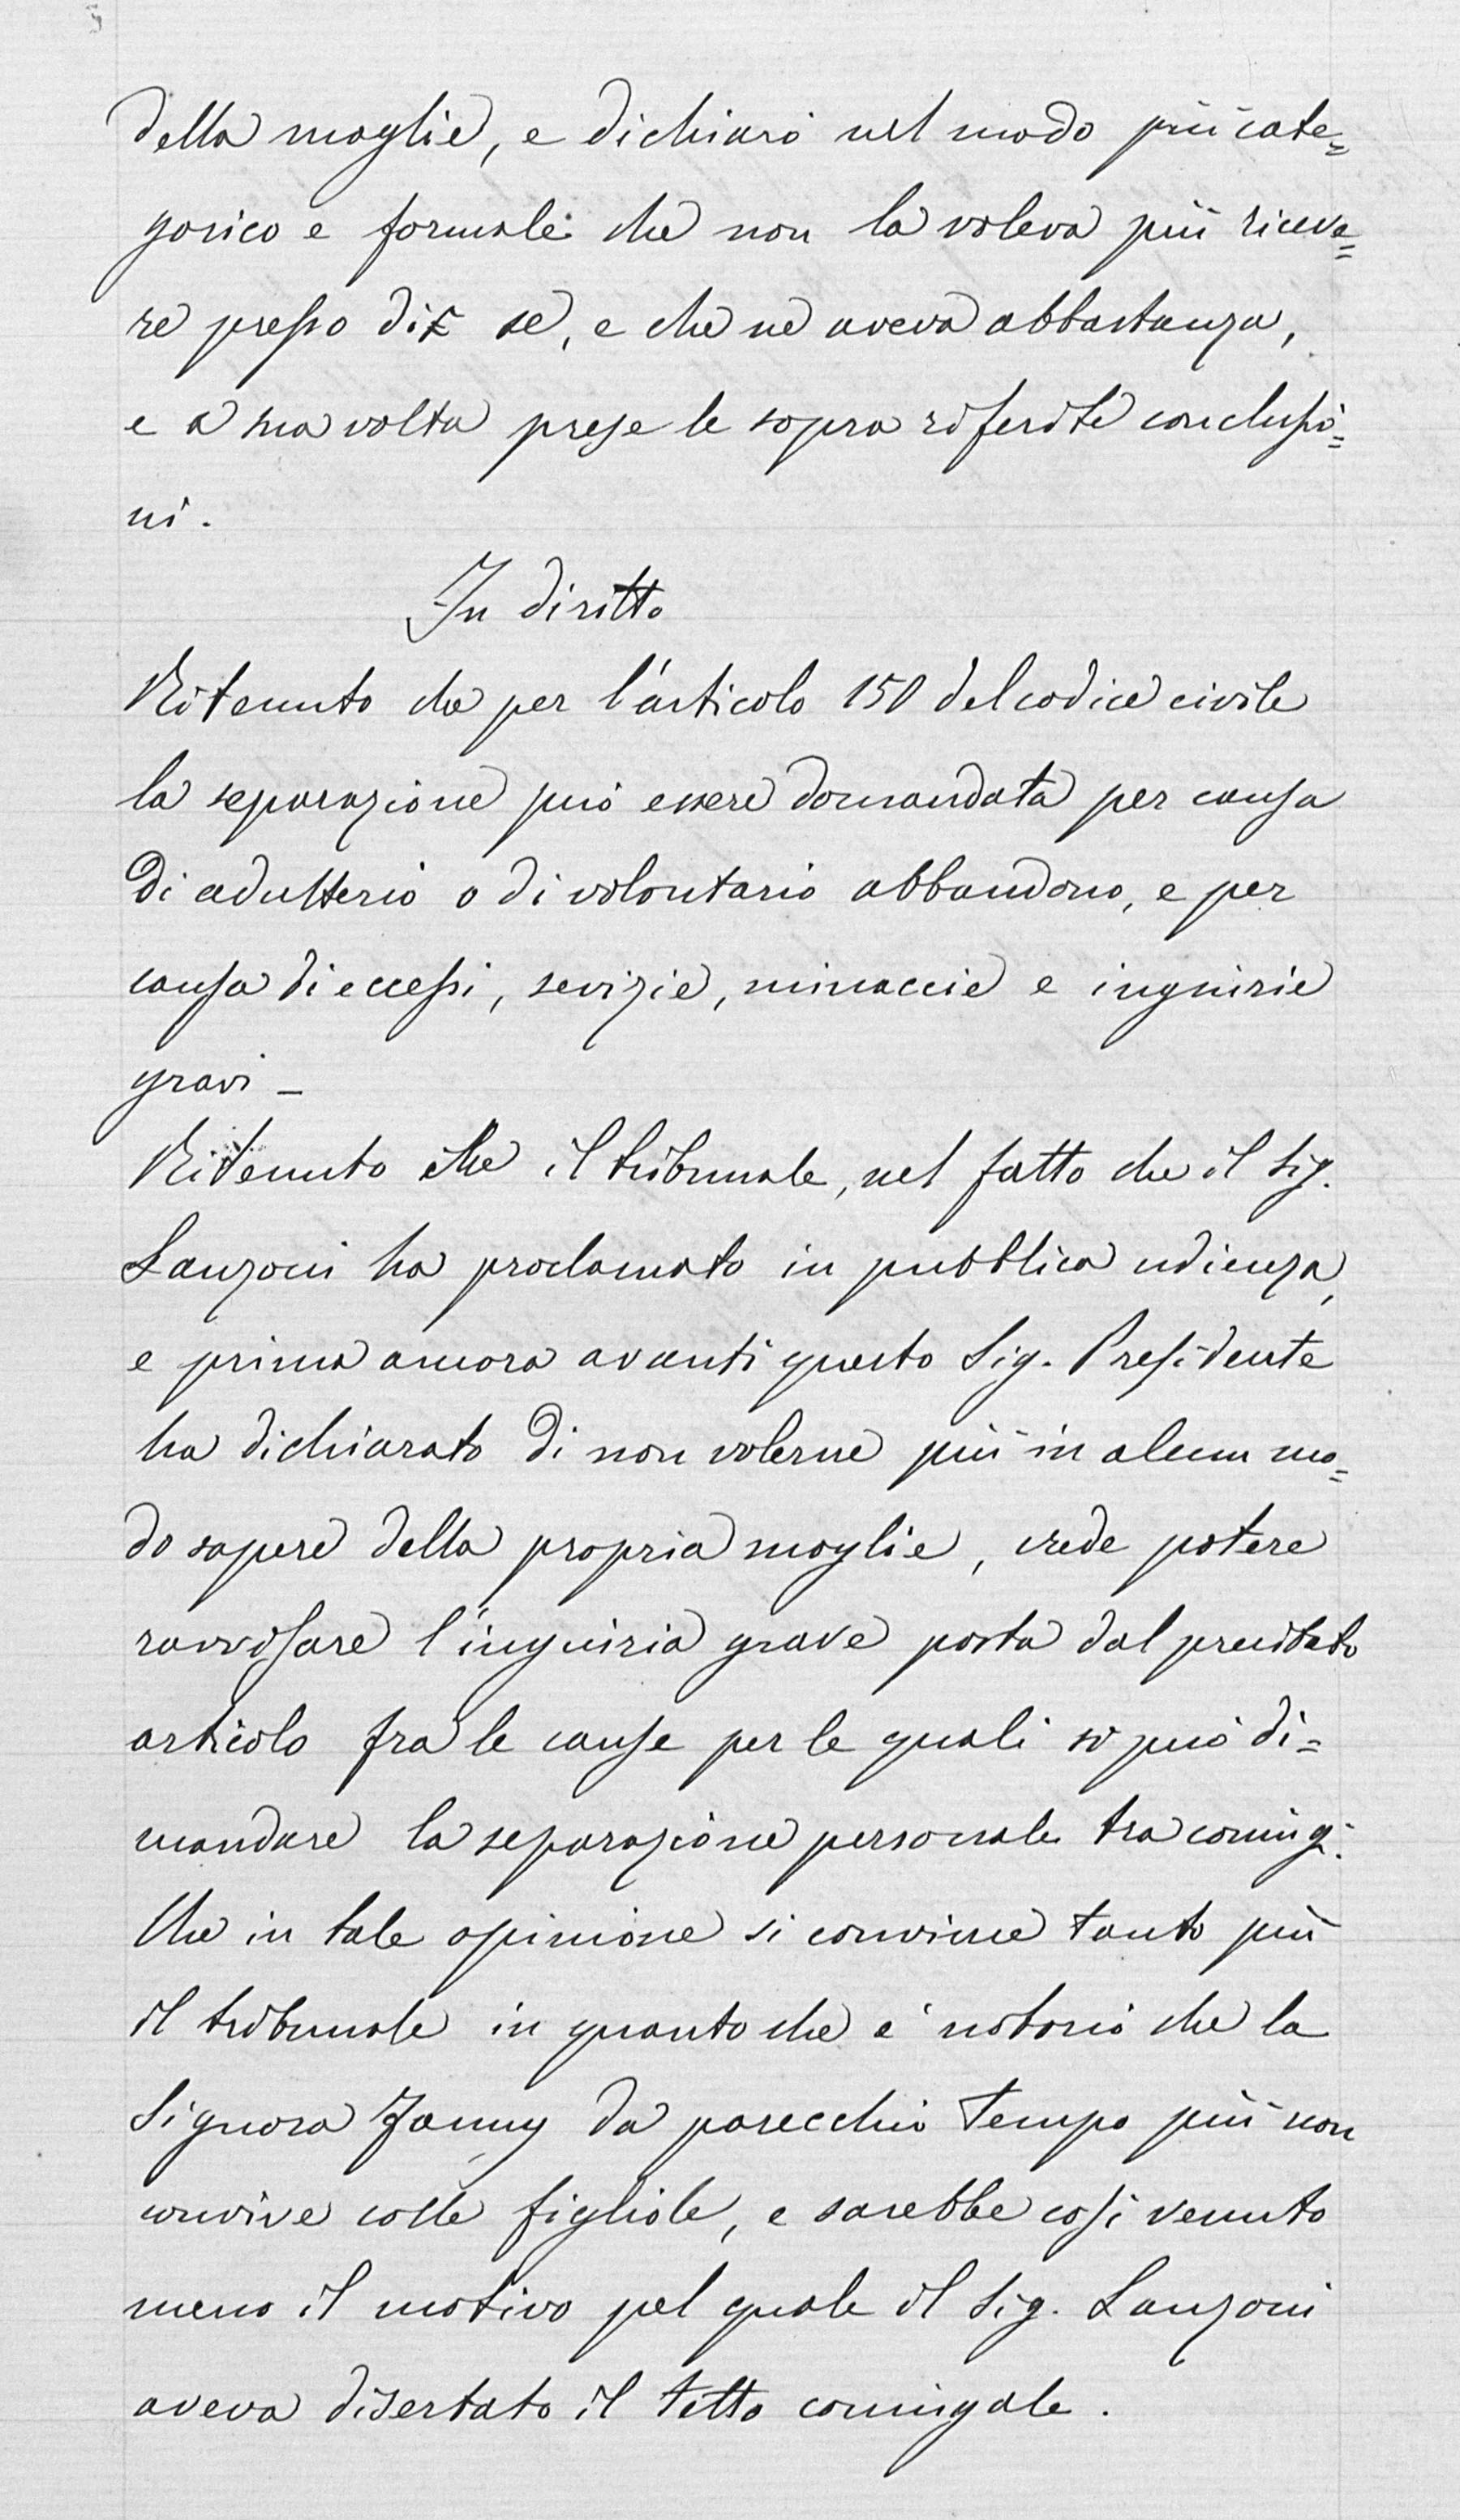 della moglie, e dichiarò nel modo più cate=
gorico e formale che non la voleva più riceve=
re presso di se, e che ne aveva abbastanza,
e a sua volta prese le sopra riferite conclusio=
ni.
In diritto
Ritenuto che per l'articolo 150 del codice civile
la separazione può essere domandata per causa
di adulterio o di volontario abbandono, e per
causa di eccessi, sevizie, minaccie e ingiurie
gravi -
Ritenuto che il tribunale, nel fatto che il sig.
Lanzoni ha proclamato in pubblica udienza,
e prima ancora avanti questo Sig. Presidente
ha dichiarato di non volerne più in alcun mo=
do sapere della propria moglie, crede potere
ravvisare l'inguiria grave posta dal precitato
articolo fra le cause per le quali si può di=
mandare la separazione personale tra coniugi.
Che in tale opinione si convinse tanto più
il tribunale in quanto che è notorio che la
Signora Fanny da parecchio tempo più non
convive colle figliole, e sarebbe così venuto
meno il motivo pel quale il sig. Lanzoni
aveva disertato il tetto coniugale.